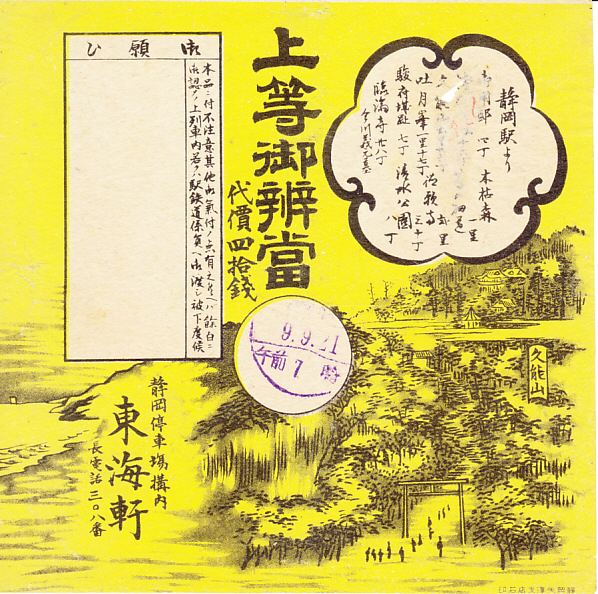 上等御辨當
代價四拾錢
静岡駅より
木枯森
一里
吐月峯一里十七丁
駿府城趾 七丁
清水公園
八丁
臨済寺 廿八丁
御願ひ
本品ニ付不注意其他御氣付ノ点有之候ヘバ餘白ニ
御認メノ上列車内若クハ駅鉄道係員ヘ御渡シ被下度候
9.9.21
午前7時
久能山
静岡停車場構内
東海軒
長電話三〇八番